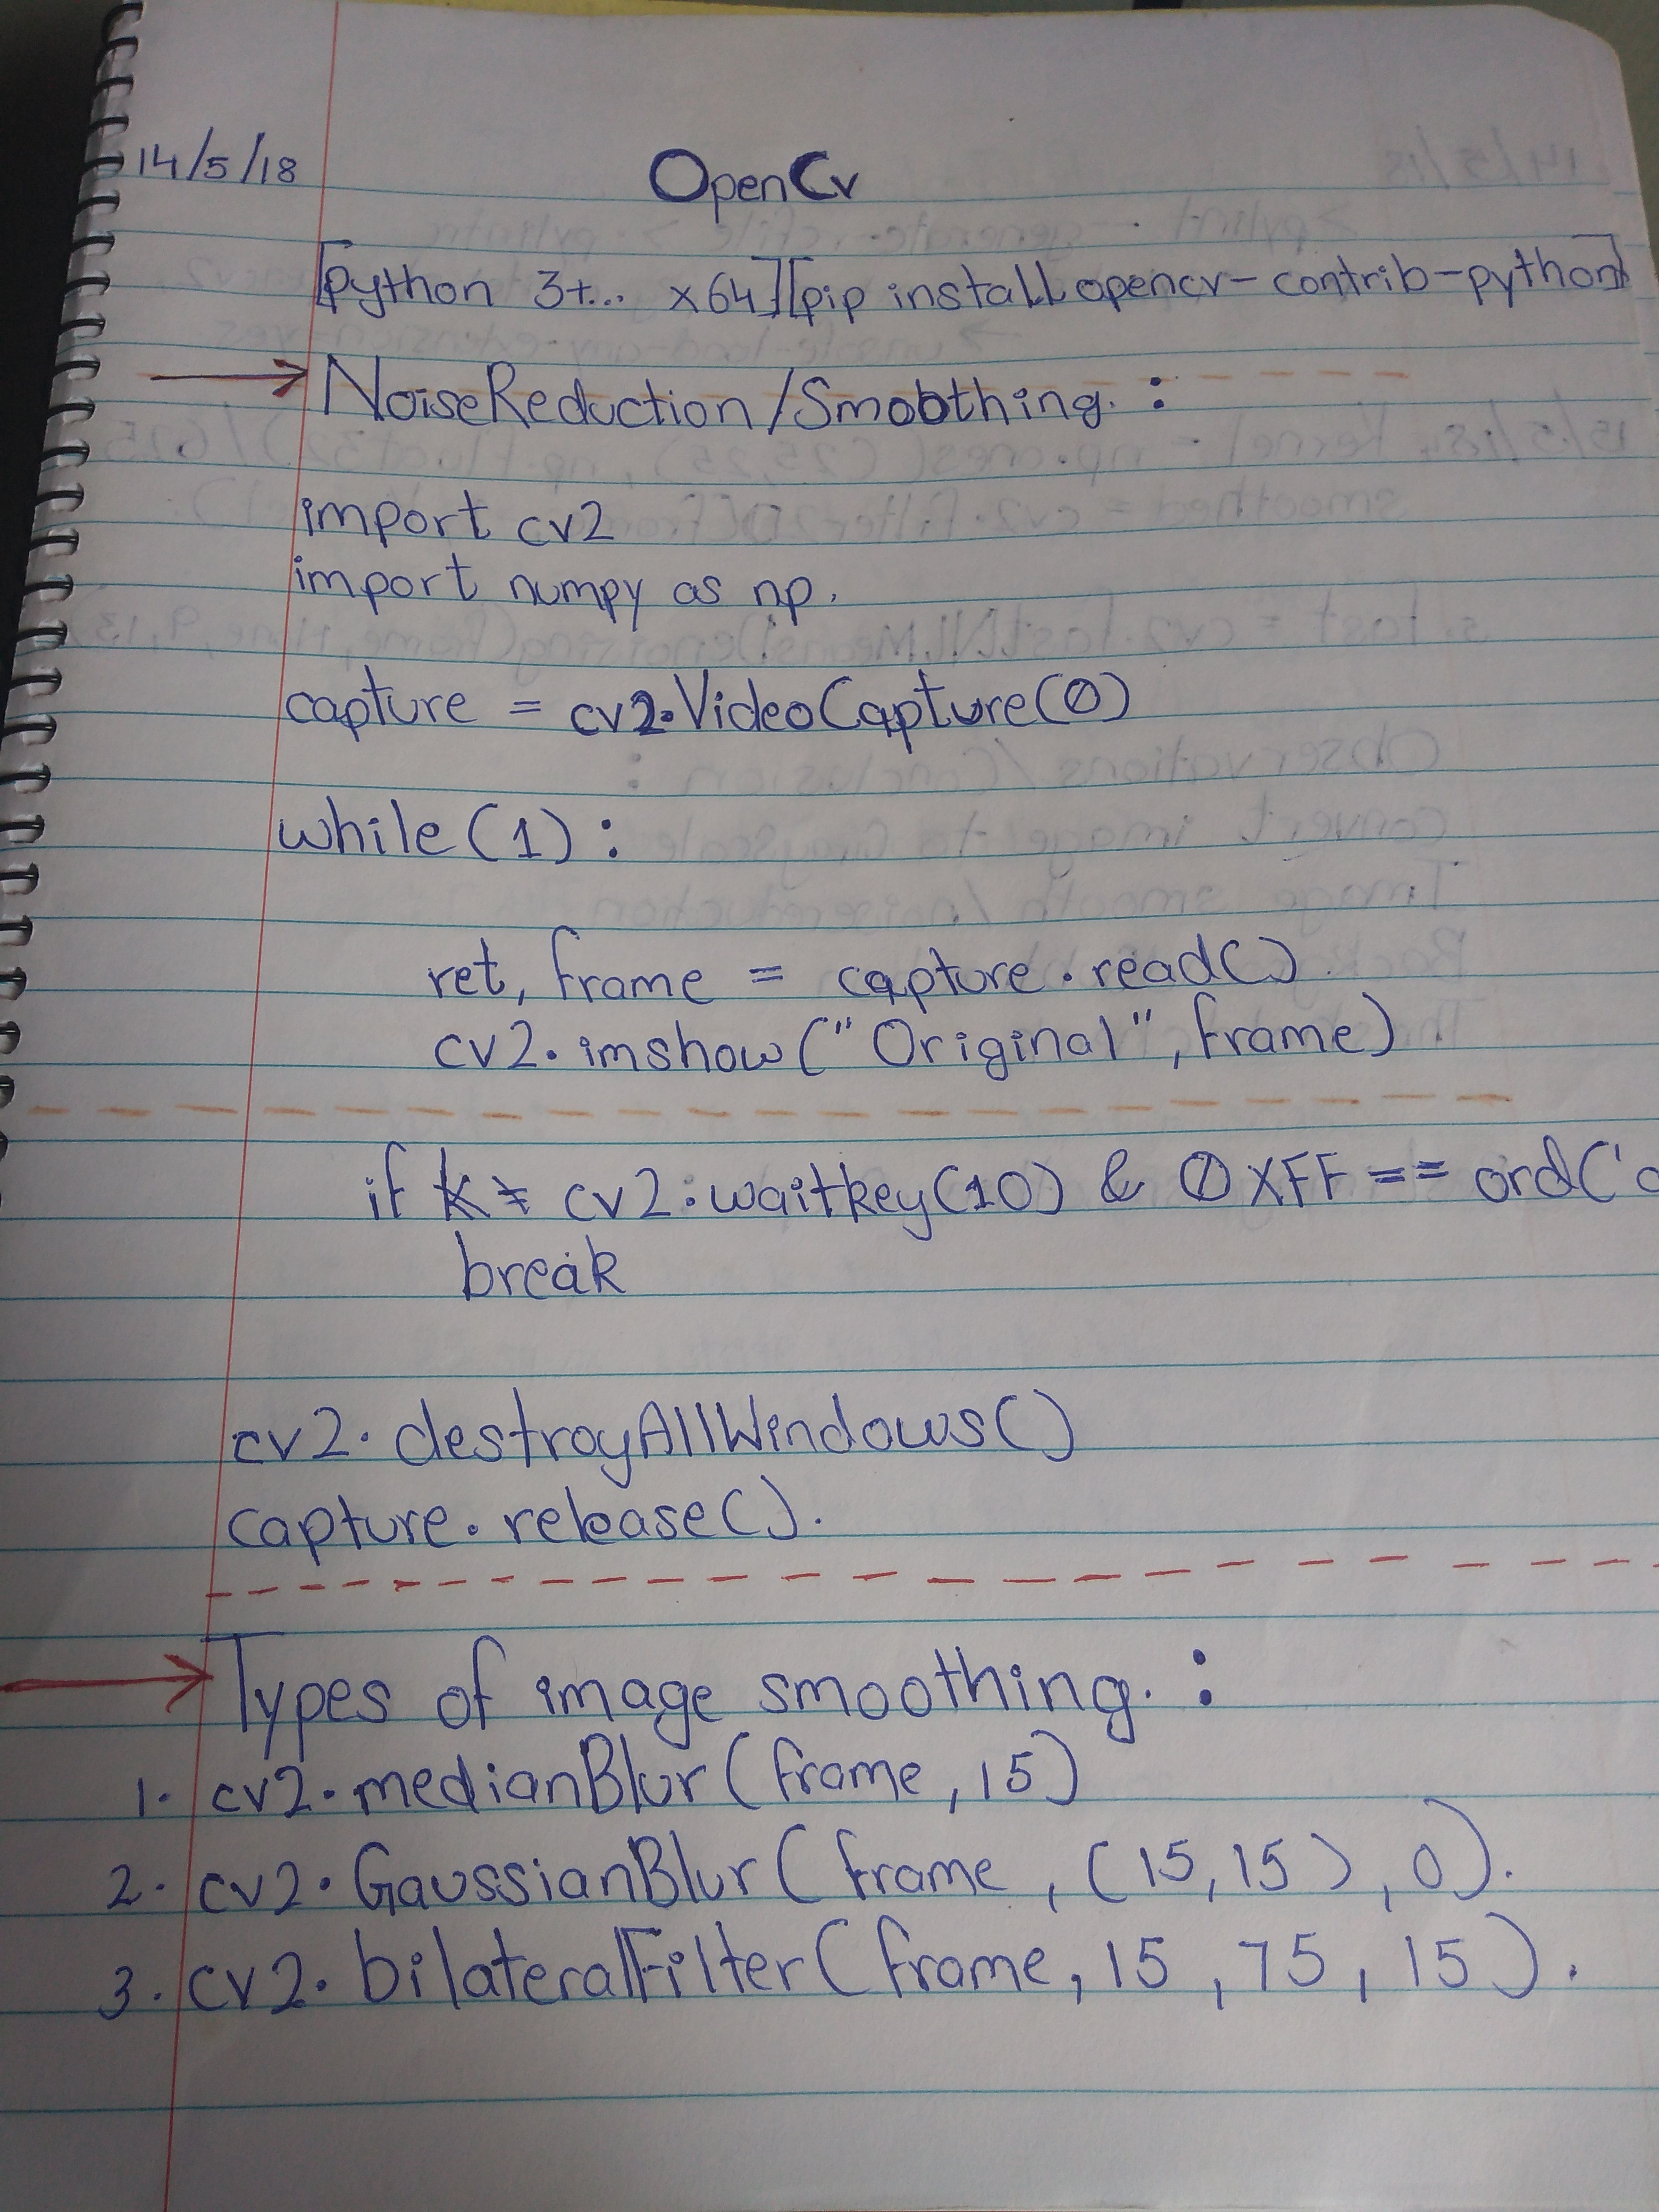 14/5/18
OpenCv
[python 3+... x64][pip install opencv-contrib-python]
NoiseReduction/Smoothing. :
import cv2
import numpy as np.
capture = cv2.VideoCapture(0)
while(1):
ret, frame = capture.read().
cv2.imshow("Original", frame)
if cv2.waitkey(10) & 0XFF == ord('
break
cv2.destroyAllWindows()
capture.release().
Types of image smoothing. :
1. cv2.medianBlur(frame, 15)
2. cv2.GaussianBlur(frame, (15,15), 0).
3. cv2.bilateralFilter(frame, 15, 75, 15).